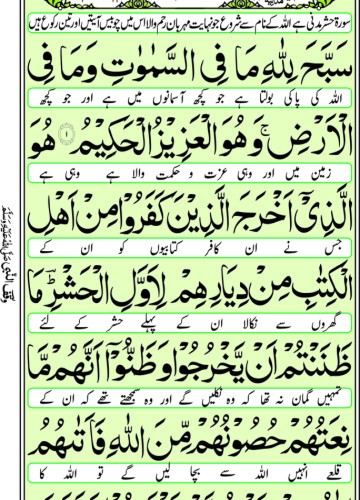 سورۃ حشر مدنی ہے اللہ کے نام سے شروع جو نہایت مہربان رحم والا اس میں چوبیس آیتیں اور تین رکوع ہیں
سَبَّحَ لِلّٰهِ مَا فِی السَّمٰوٰتِ وَمَا فِی
اللہ کی پاکی بولتا ہے جو کچھ آسمانوں میں ہے اور جو کچھ
الْاَرْضِ ۚ وَهُوَ الْعَزِیْزُ الْحَكِیْمُ ۝۱ هُوَ
زمین میں اور وہی عزت و حکمت والا ہے وہی ہے
الَّذِیْۤ اَخْرَجَ الَّذِیْنَ كَفَرُوْا مِنْ اَهْلِ
جس نے ان کافر کتابیوں کو ان کے
الْكِتٰبِ مِنْ دِیَارِهِمْ لِاَوَّلِ الْحَشْرِ ؔؕ مَا
گھروں سے نکالا ان کے پہلے حشر کے لئے
ظَنَنْتُمْ اَنْ یَّخْرُجُوْا وَظَنُّوْۤا اَنَّهُمْ مَّا
تمہیں گمان نہ تھا کہ وہ نکلیں گے اور وہ سمجھتے تھے کہ ان کے
نِعَتُهُمْ حُصُوْنُهُمْ مِّنَ اللّٰهِ فَاَتٰىهُمُ
قلعے انہیں اللہ سے بچا لیں گے تو اللہ کا
وقف النبی صلی اللہ علیہ وسلم